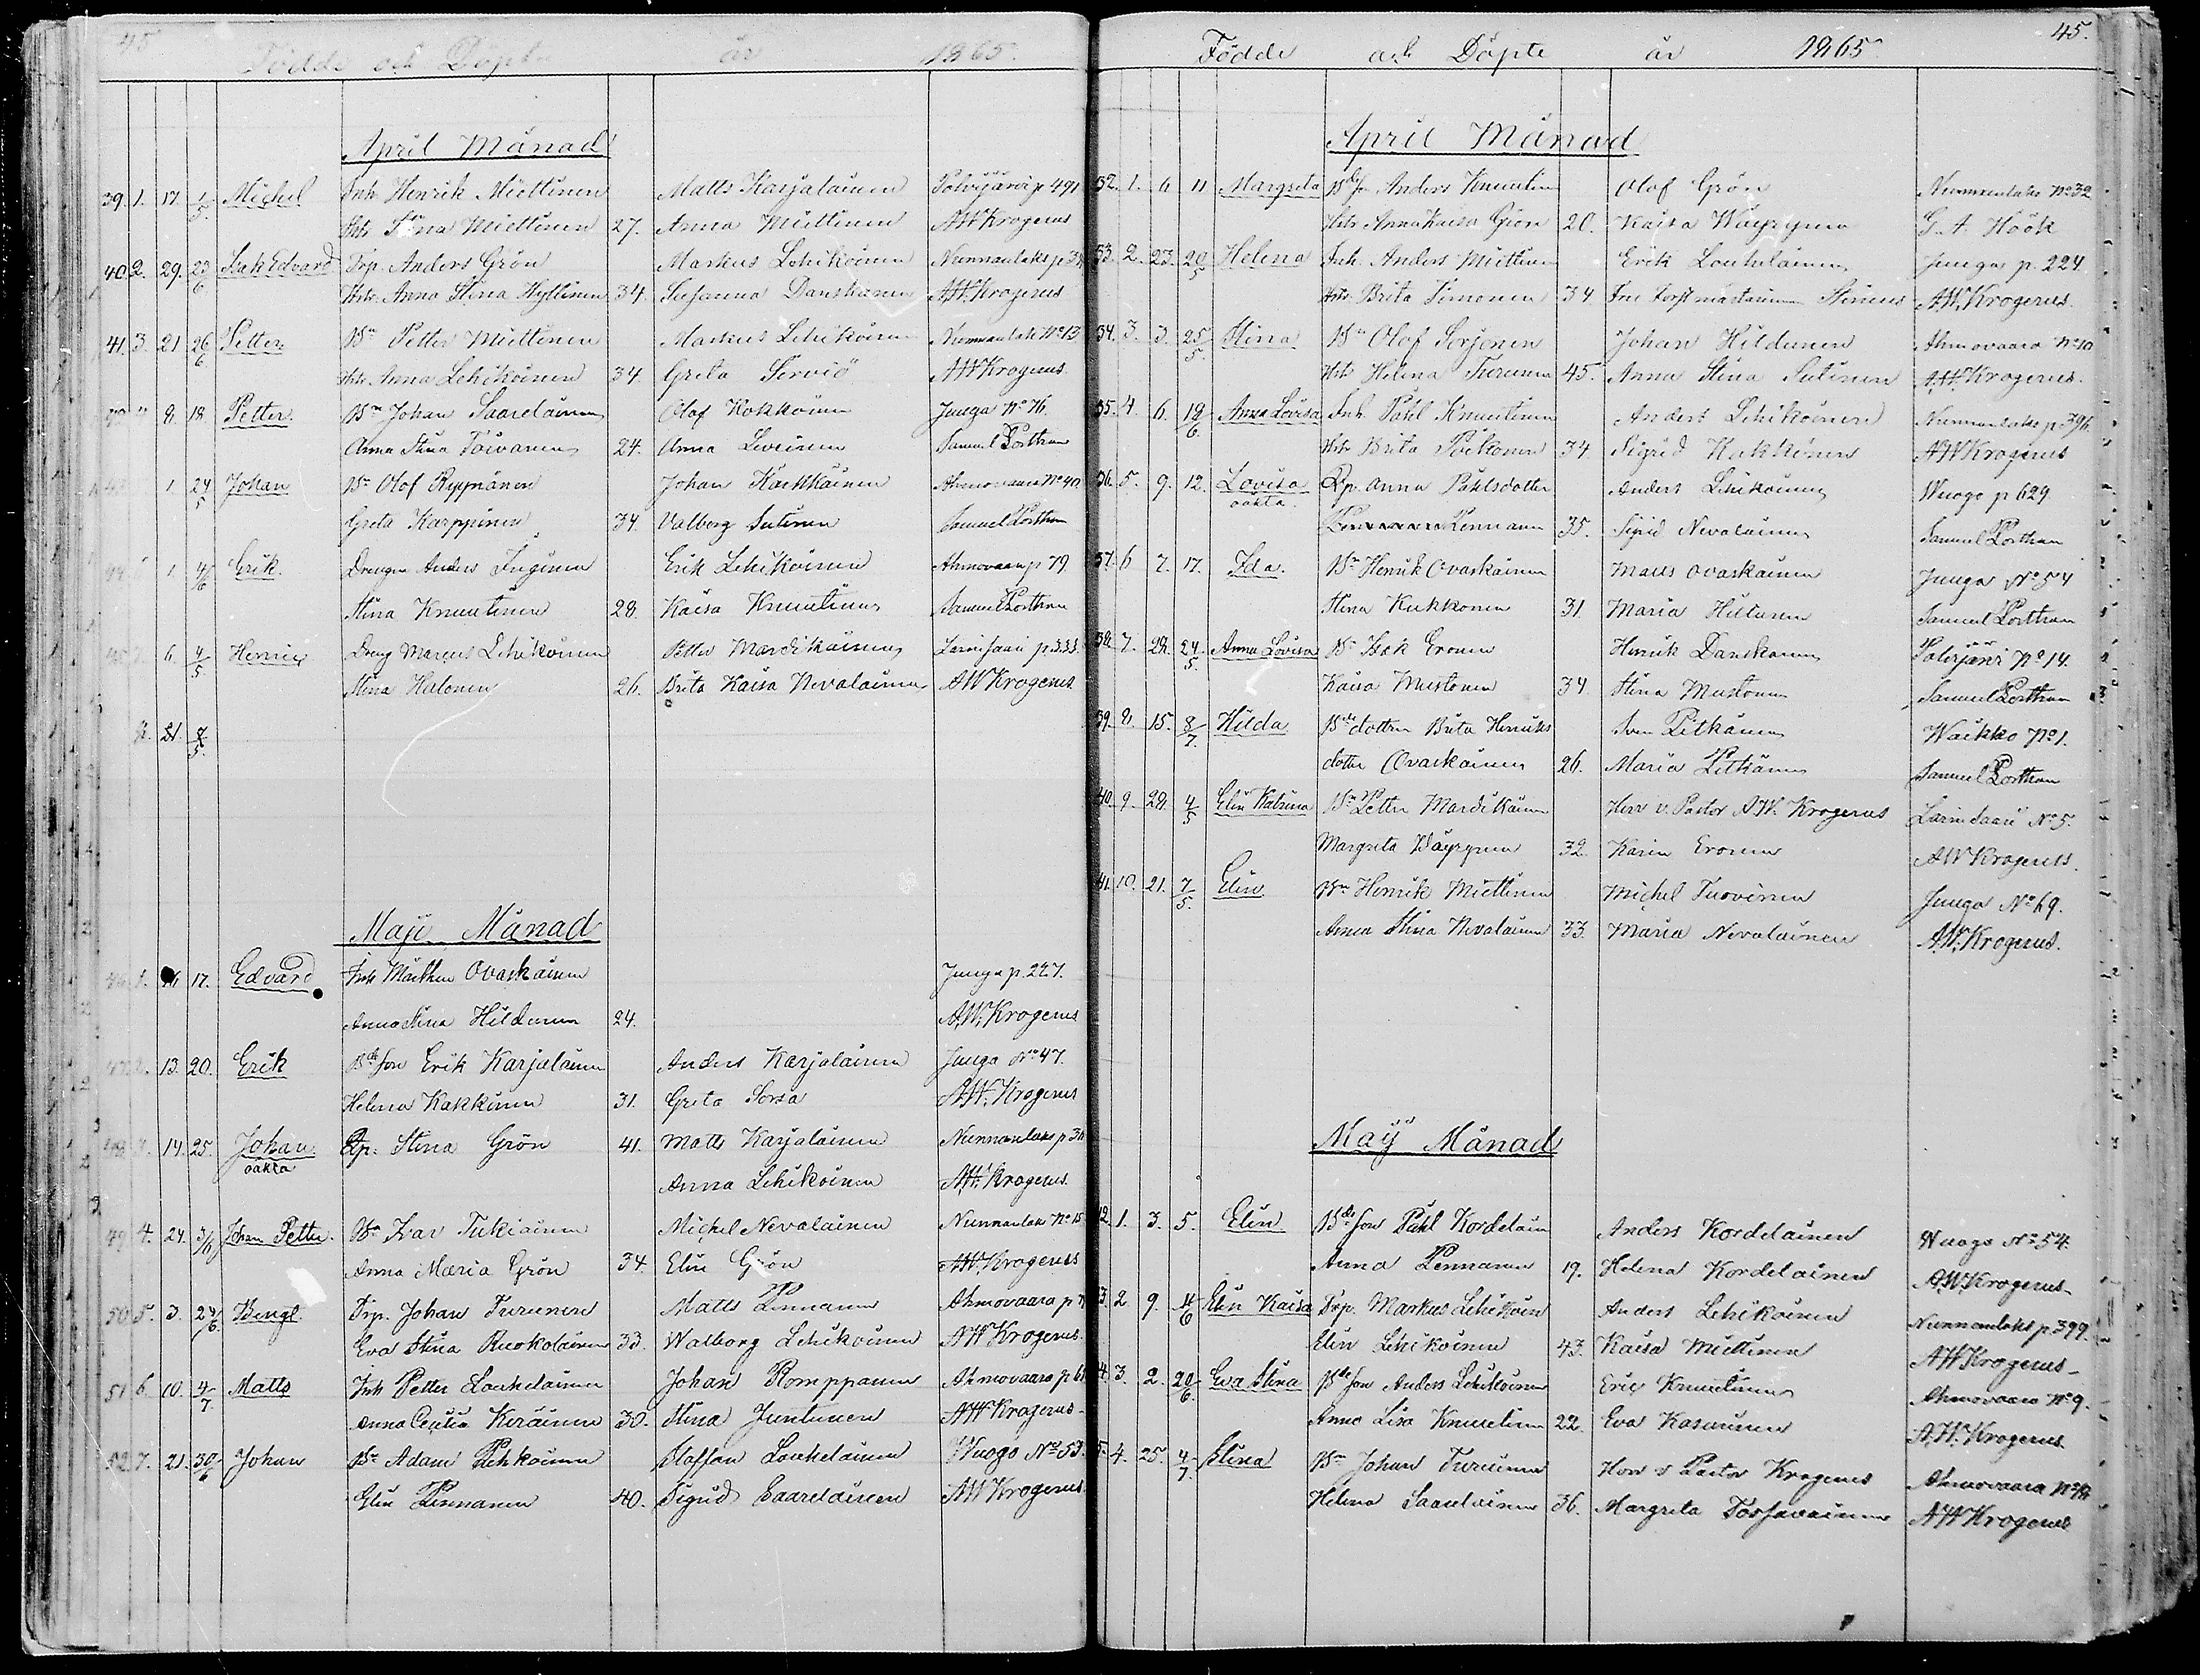 45
Födde och Döpte år 1865.
April Månad
39. 1. 17. 1/5 Michel Inh Henrik Miettinen Matts Karjalainen Polvijärvi p 491
Hstr Stina Miettinen 27. Anna Miettinen AW Krogerus
40. 2. 29. 23/6 Isak Edvard Trp. Anders Grön Markus Lehikoinen Nunnanlaks p 3
Hstr. Anna Stina Hyttinen 34. Susanna Danskanen AW. Krogerus
41. 3. 21 26/6 Petter Bn Petter Miettinen Markus Lehikoinen Nunnanlaks No 13
Hstr Anna Lehikoinen 34. Greta Serviö AW Krogerus.
8 18 Petter. Bn Johan Saarelainen Olof Kokkonen Juuga No 76.
Anna Stina Toivanen 24. Anna Leveinen Samuel Porthan
1 24/5 Johan Bn Olof Ryynänen Johan Kärkkäinen Ahmovaara No 40
Greta Karppinen 34. Valborg Sutinen Samuel Porthan
1. 4/6 Erik. Drengen Anders Inginen Erik Lehikoinen Ahmovaara p 79
Stina Knuutinen 28. Kaisa Knuutinen Samuel Porthan
6. 4/5 Henric Dreng Marcus Lehikoinen Petter Mardikainen Larinsaari p 333.
Stina Halonen 26. Brita Kaisa Nevalainen AW Krogerus.
21. 8/5.
Maji Månad
46. 1. 17. Edvard Inh Matthus Ovaskainen Juuga p. 227.
Anna Stina Hildunen 24. A.W. Krogerus
47. 2. 13. 20. Erik Bdeson Erik Karjalainen Anders Karjalainen Juuga No 47.
Helena Kakkinen 31. Greta Sorsa AW. Krogerus
14. 25. Johan oäkta Qp. Stina Grön 41. Matts Karjalainen Nunnanlaks p 3
Anna Lehikoinen AW. Krogerus.
49 4. 24. 3/6 Johan Petter. Bn Ivar Tukiainen Michel Nevalainen Nunnanlaks No 15
Anna Maria Grön 34. Elin Grön AW. Krogerus
50 5. 3. 24/6. Bengt. Trp. Johan Turunen Matts Pennanen Ahmovaara p
Eva Stina Ruokolainen 33. Walborg Lehikoinen AW Krogerus.
51 6. 10. 4/7 Matts Inh Petter Loukelainen Johan Romppanen Ahmovaara p 6
Anna Cecilia Keräinen 30. Stina Juntunen AW Krogerus
52 7. 21. 30/6 Johan Bn Adam Pehkoinen Staffan Loukelainen Wuogo No 53.
Elin Pennanen 40. Sigrid Saarelainen AW Krogerus.
45.
Födde och Döpte år 1865
April Månad
32. 1. 6 11 Margreta Bdeson Anders Knuutin Olof Grön Nunnanlaks No 32
Hstr Anna Kaisa Grön 20. Kaisa Wäyrynen G. A. Höök
33. 2. 23. 20/5 Helena Inh. Anders Miettinen Erik Loukelainen Juuga p. 224.
Hstr Brita Simonen 34 Fru Forstmästarinnan AW. Krogerus.
34. 3. 3. 25/5 Stina Bn Olof Sorjonen Johan Hildunen Ahmovaara No 10
Hstr Helena Turunen 45. Anna Stina Sutinen A.W. Krogerus.
35. 4. 6. 18/6. Anna Lovisa Inh. Påhl Knuutinen Anders Lehikoinen Nunnanlaks p 396.
Hstr Brita Poikonen 34 Sigrid Kukkonen AW Krogerus
36. 5. 9. 12. Lovisa oäkta. Qp. Anna Påhlsdotter Anders Lehikoinen Wuogo p 629.
Pennanen 35. Sigrid Nevalainen Samuel Porthan
37. 6 7. 17. Ida. Bn Henrik Ovaskainen Matts Ovaskainen Juuga No 54
Stina Kukkonen 31 Maria Hiltunen Samuel Porthan
38. 7. 28. 24/5. Anna Lovisa Bn Isak Eronen Henrik Danskanen Polvijärvi No 14.
Kaisa Mustonen 34 Stina Mustonen Samuel Porthan
39. 8. 15. 8/7. Hilda Bdedottren Brita Henriks Sven Pitkänen Waikko No 1.
dotter Ovaskainen 26. Maria Pitkänen Samuel Porthan
40. 9. 28. 4/5 Elin Katrina Bn Petter Mardikain Herr v. Pastor A.W. Krogerus Larinsaari No 5.
Margreta Wäyrynen 32. Karin Eronen AW Krogerus.
41. 10. 21. 7/5. Elin Bn Henrik Miettinen Michel Tuovinen Juuga No 69.
Anna Stina Nevalainen 33. Maria Nevalainen A.W. Krogerus.
Maij Månad
42. 1. 3. 5. Elin Bdeson Påhl Kordelain Anders Kordelainen Wuogo No 54.
Anna Pennanen 19. Helena Kordelainen AW Krogerus
3. 2 9. 11/6 Elin Kaisa Trp. Markus Lehikoin Anders Lehikoinen Nunnanlaks p 399.
Elin Lehikoinen 43. Kaisa Miettinen AW Krogerus
4. 3. 2. 20/6 Eva Stina Bdeson Anders Lehikoinen Eric Knuutinen Ahmovaara No 9.
Anna Lisa Knuutinen 22. Eva Kasurinen A.W. Krogerus
5. 4. 25. 4/7 Stina Bn Johan Turunen Herr v Pastor Krogerus Ahmovaara
Helena Saarelainen 36. Margreta Tossavainen AW Krogerus